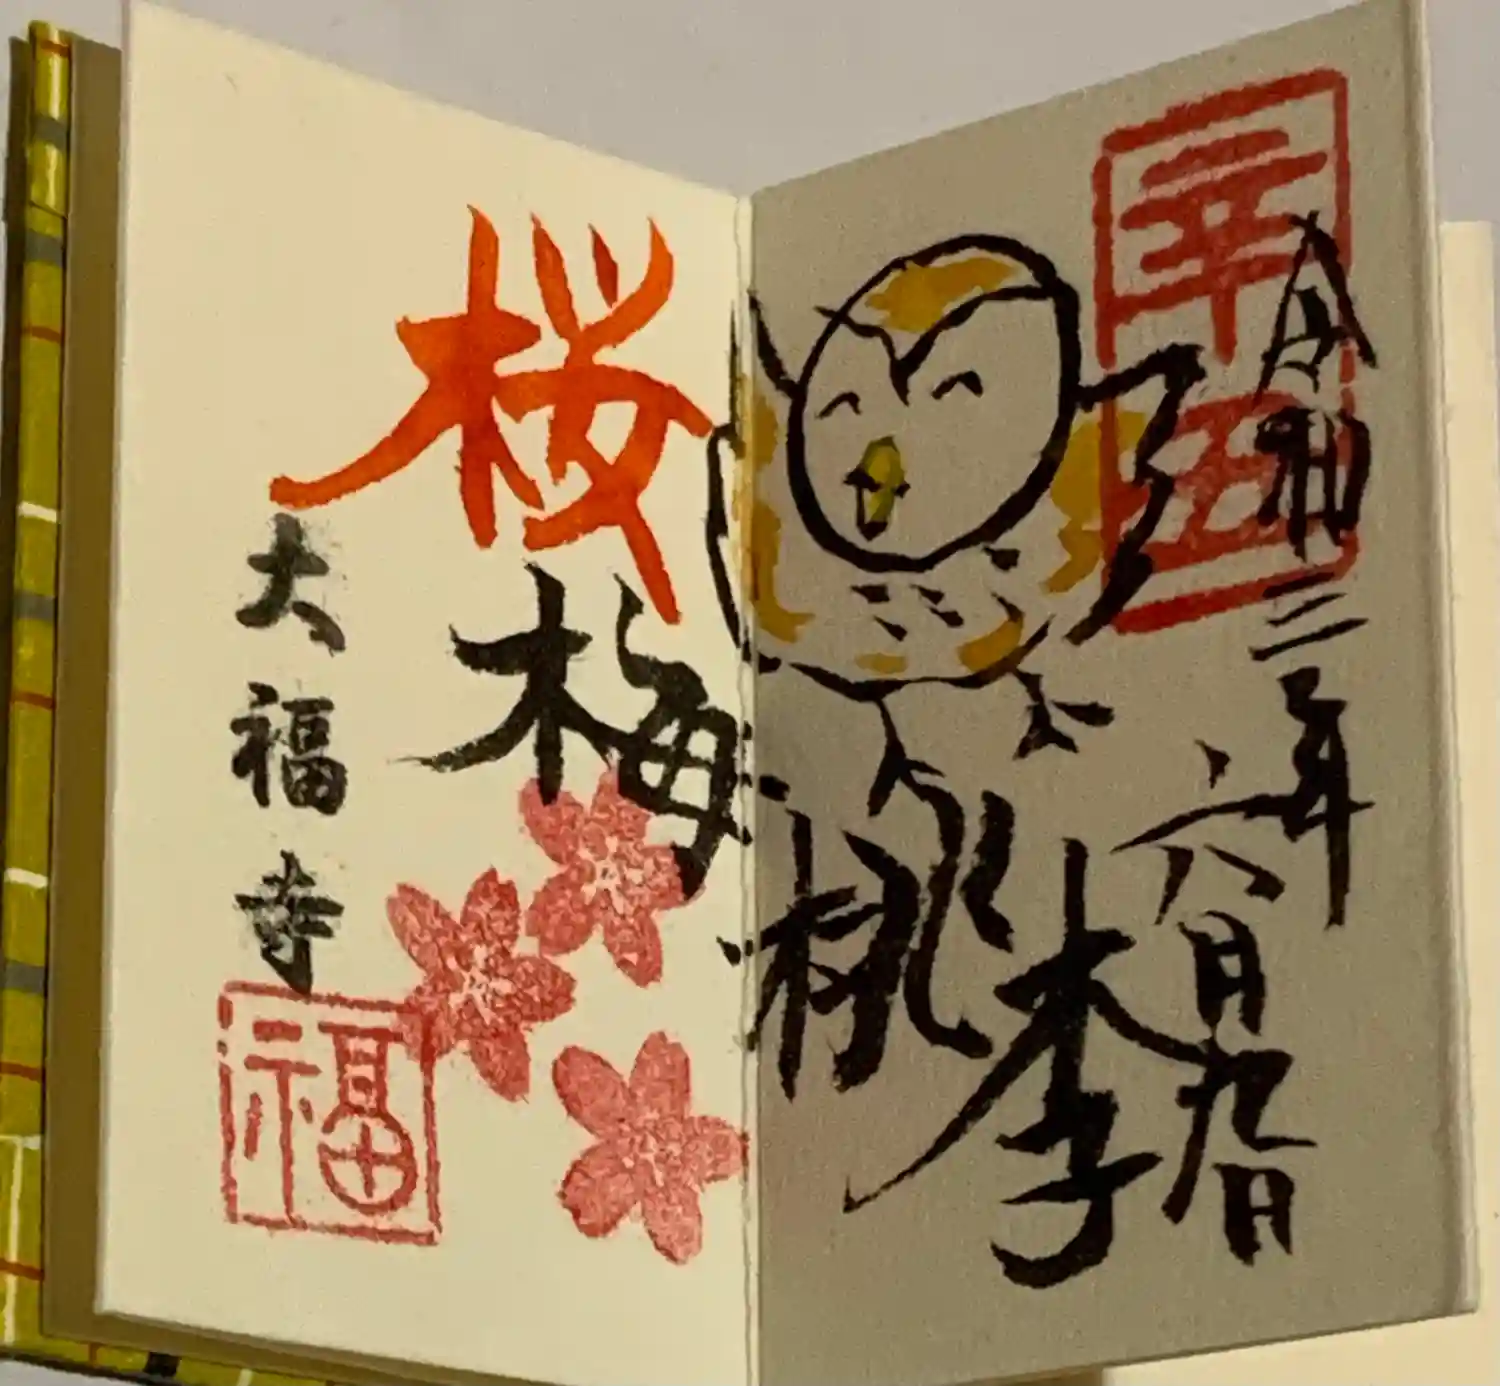 幸
令和三年
六月九日
桜梅桃李
大福寺
福